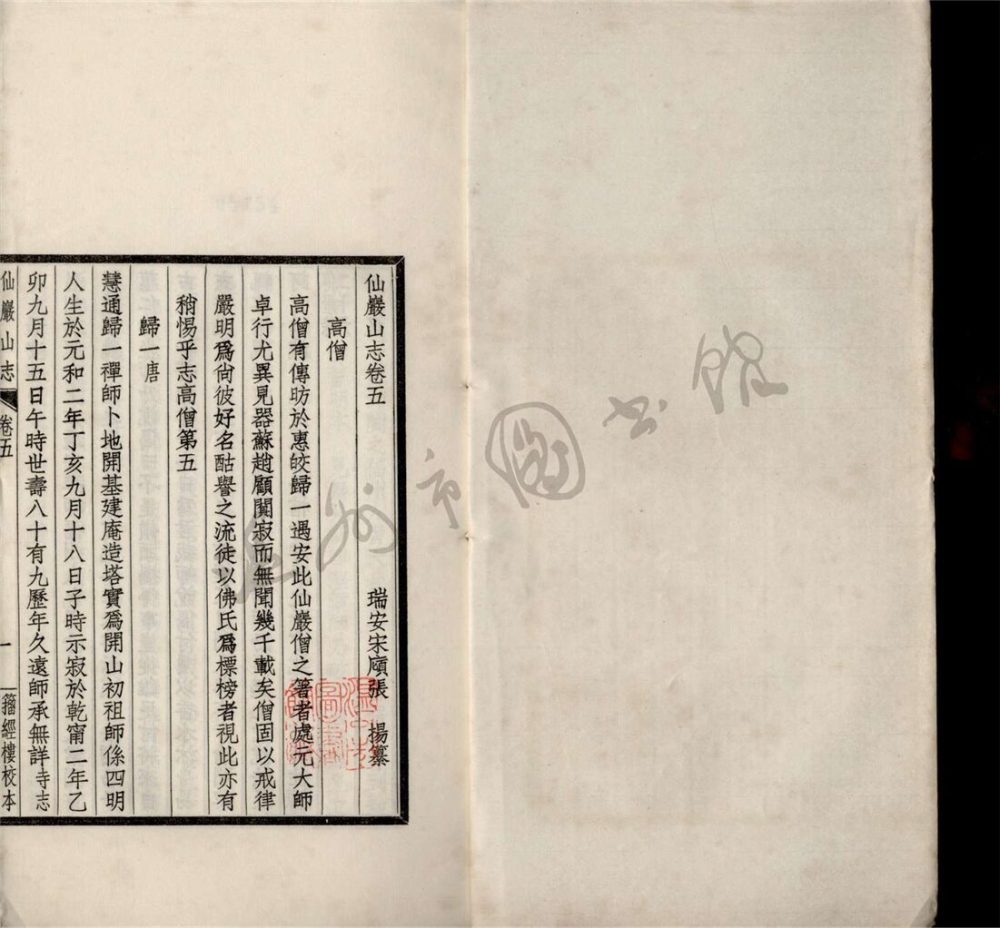 仙巖山志卷五 瑞安宋㢠張 楊纂
高僧
高僧有傳昉於惠皎歸一遇安此仙巖僧之箸者處元大師
卓行尤異見器蘇趙顧闃寂而無聞幾千載矣僧固以戒律
嚴明爲尙彼好名酤譽之流徒以佛氏爲標榜者視此亦有
稍惕乎志高僧第五
歸一唐
慧通歸一禪師卜地開基建庵造塔實爲開山初祖師係四明
人生於元和二年丁亥九月十八日子時示寂於乾甯二年乙
卯九月十五日午時世壽八十有九歷年久遠師承無詳寺志
仙巖山志
卷五
一
籀經樓校本